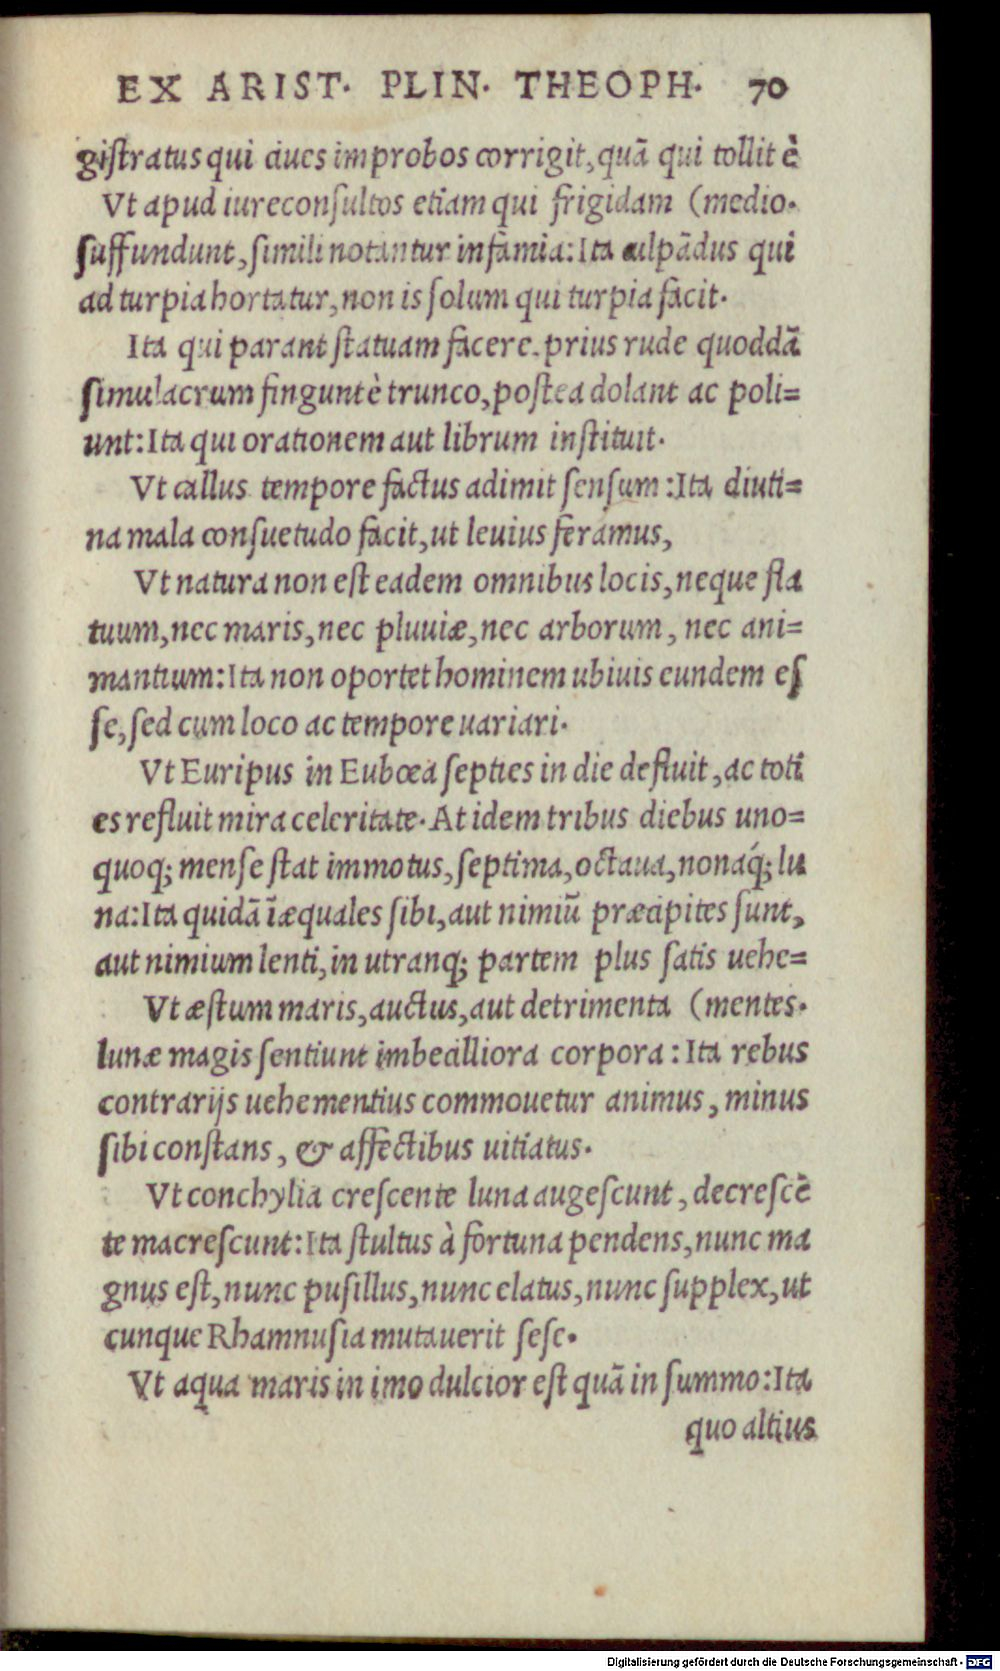 EX ARIST. PLIN. THEOPH. 70
giſtratus qui ciues improbos corrigit, quā qui tollit è
Vt apud iureconſultos etiam qui frigidam (medio.
ſuffundunt, ſimili notantur infamia: Ita culpādus qui
ad turpia hortatur, non is ſolum qui turpia facit.
Ita qui parant ſtatuam facere. prius rude quoddā
ſimulacrum fingunt è trunco, poſtea dolant ac poli=
unt: Ita qui orationem aut librum inſtituit.
Vt callus tempore factus adimit ſenſum: Ita diuti=
na mala conſuetudo facit, ut leuius feramus,
Vt natura non eſt eadem omnibus locis, neque fla
tuum, nec maris, nec pluuiæ, nec arborum, nec ani=
mantium: Ita non oportet hominem ubiuis eundem eſ
ſe, ſed cum loco ac tempore uariari.
Vt Euripus in Eubœa ſepties in die defluit, ac toti
es refluit mira celeritate. At idem tribus diebus uno=
quoq; menſe ſtat immotus, ſeptima, octaua, nonaq́; lu
na: Ita quidā īæquales ſibi, aut nimiū præcipites ſunt,
aut nimium lenti, in utranq; partem plus ſatis uehe=
Vt æſtum maris, auctus, aut detrimenta (mentes.
lunæ magis ſentiunt imbecilliora corpora: Ita rebus
contrarijs uehementius commouetur animus, minus
ſibi conſtans, & affectibus uitiatus.
Vt conchylia creſcente luna augeſcunt, decreſcē
te macreſcunt: Ita ſtultus à fortuna pendens, nunc ma
gnus eſt, nunc puſillus, nunc elatus, nunc ſupplex, ut
cunque Rhamnuſia mutauerit ſeſe.
Vt aqua maris in imo dulcior eſt quā in ſummo: Ita
quo altius
Digitalisierung gefördert durch die Deutsche Forschungsgemeinschaft - DFG